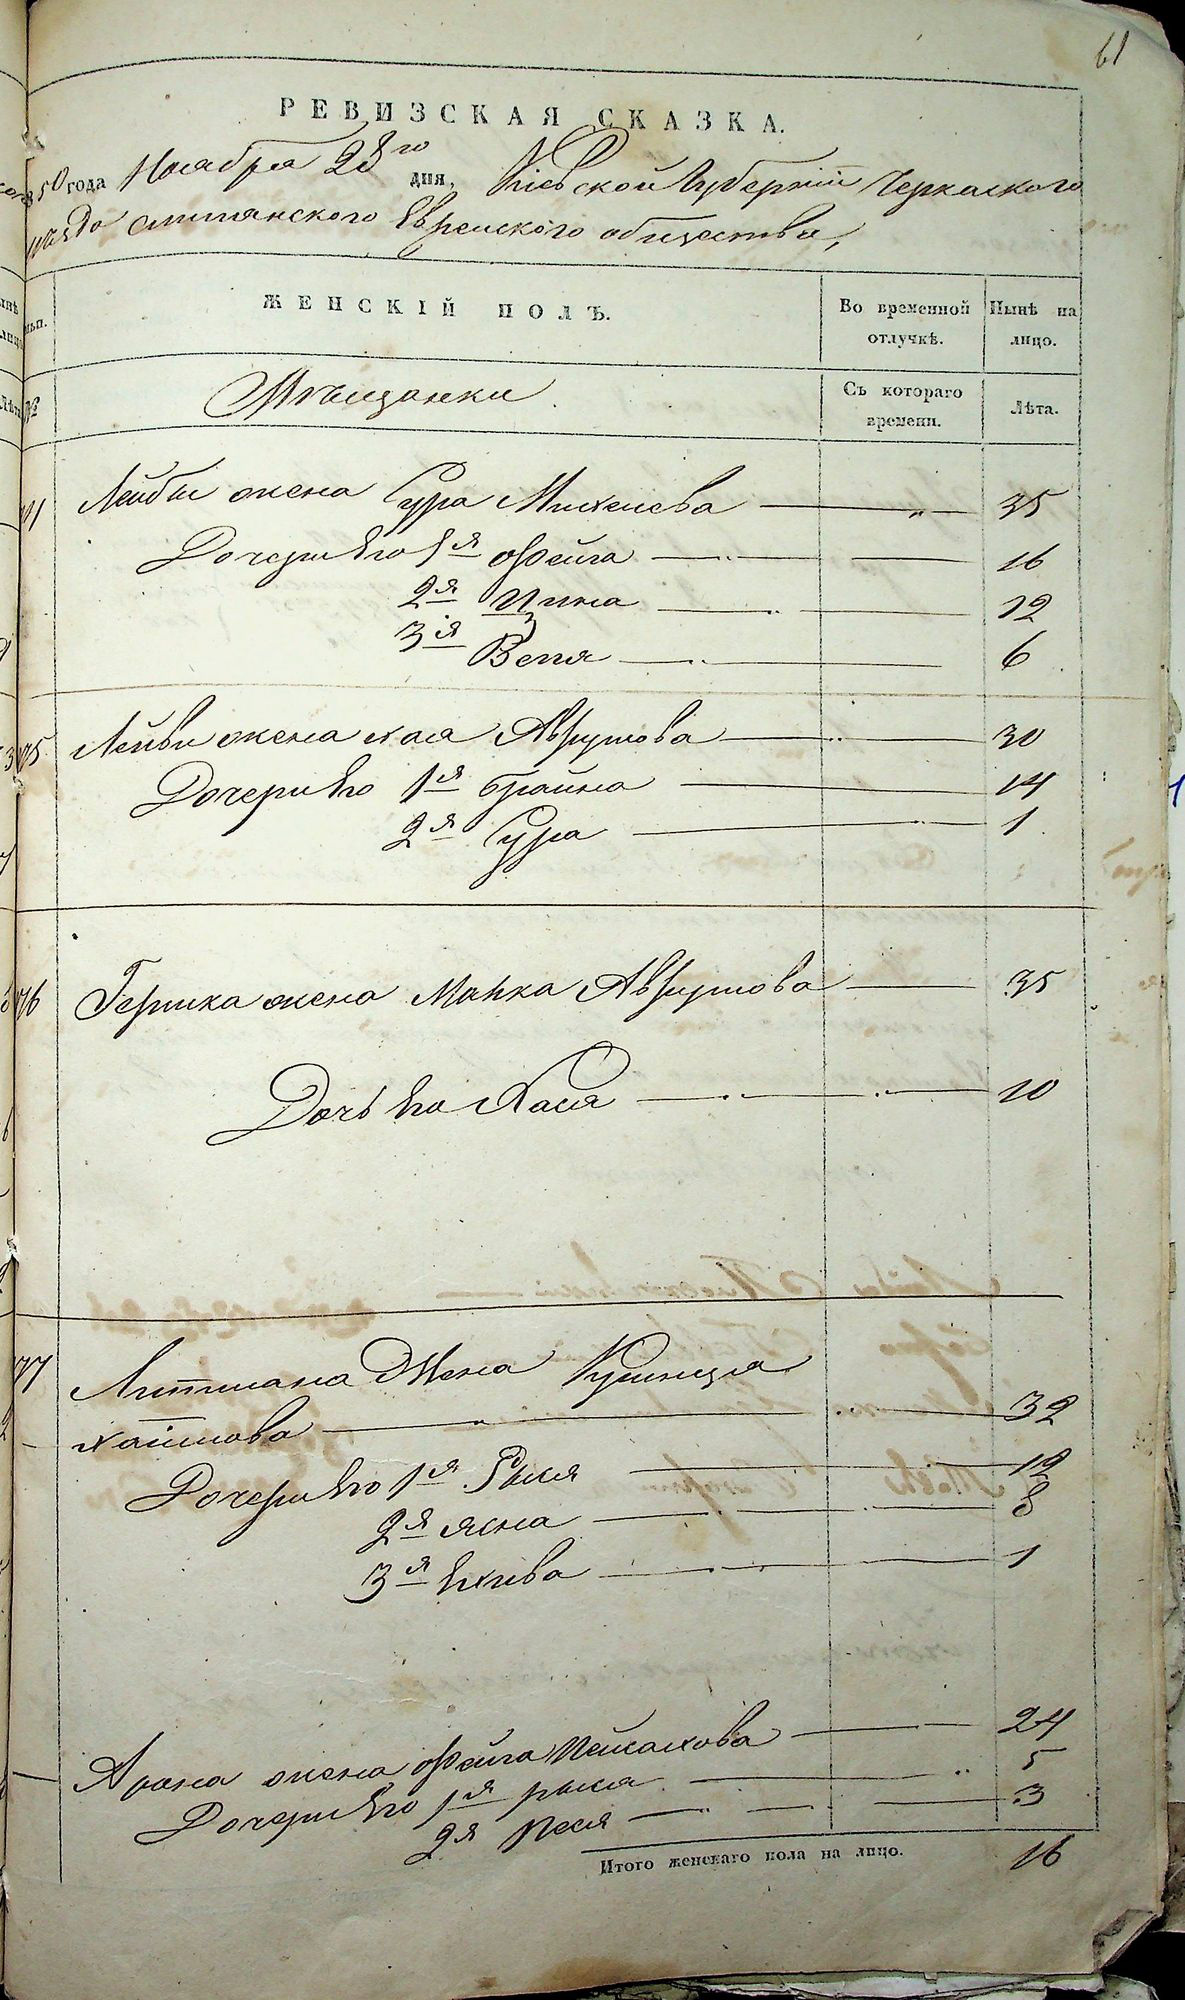 61
РЕВИЗСКАЯ СКАЗКА.
850 года Ноября 28го дня, Кіевской Губерніи Черкаского
уѣзда смилянского Еврейского общества,
ЖЕНСКІЙ ПОЛЪ.
Во временной отлучкѣ.
Нынѣ на лицо.
№
Мѣщанки
Съ котораго времени.
Лѣта.
Лейбы жена Сура Михелева — 35
Дочери Его 1я Фейга — 16
2я Цина — 12
3я Вепя — 6
75 Лейви жена Хая Аврумова — 30
Дочери Его 1я Брайна — 14
2я Сура — 1
76 Гершка жена Малка Аврумова — 35
Дочь Его Хася — 10
77 Литмана Жена Кушица
Хаимова — 32
Дочери Его 1я Рыся — 12
2я Ясна — 8
3я Ехива — 1
Арона жена Фейга Пейсахова — 24
Дочери Его 1я Рыся — 5
2я Песя — 3
Итого женскаго пола на лицо. 16